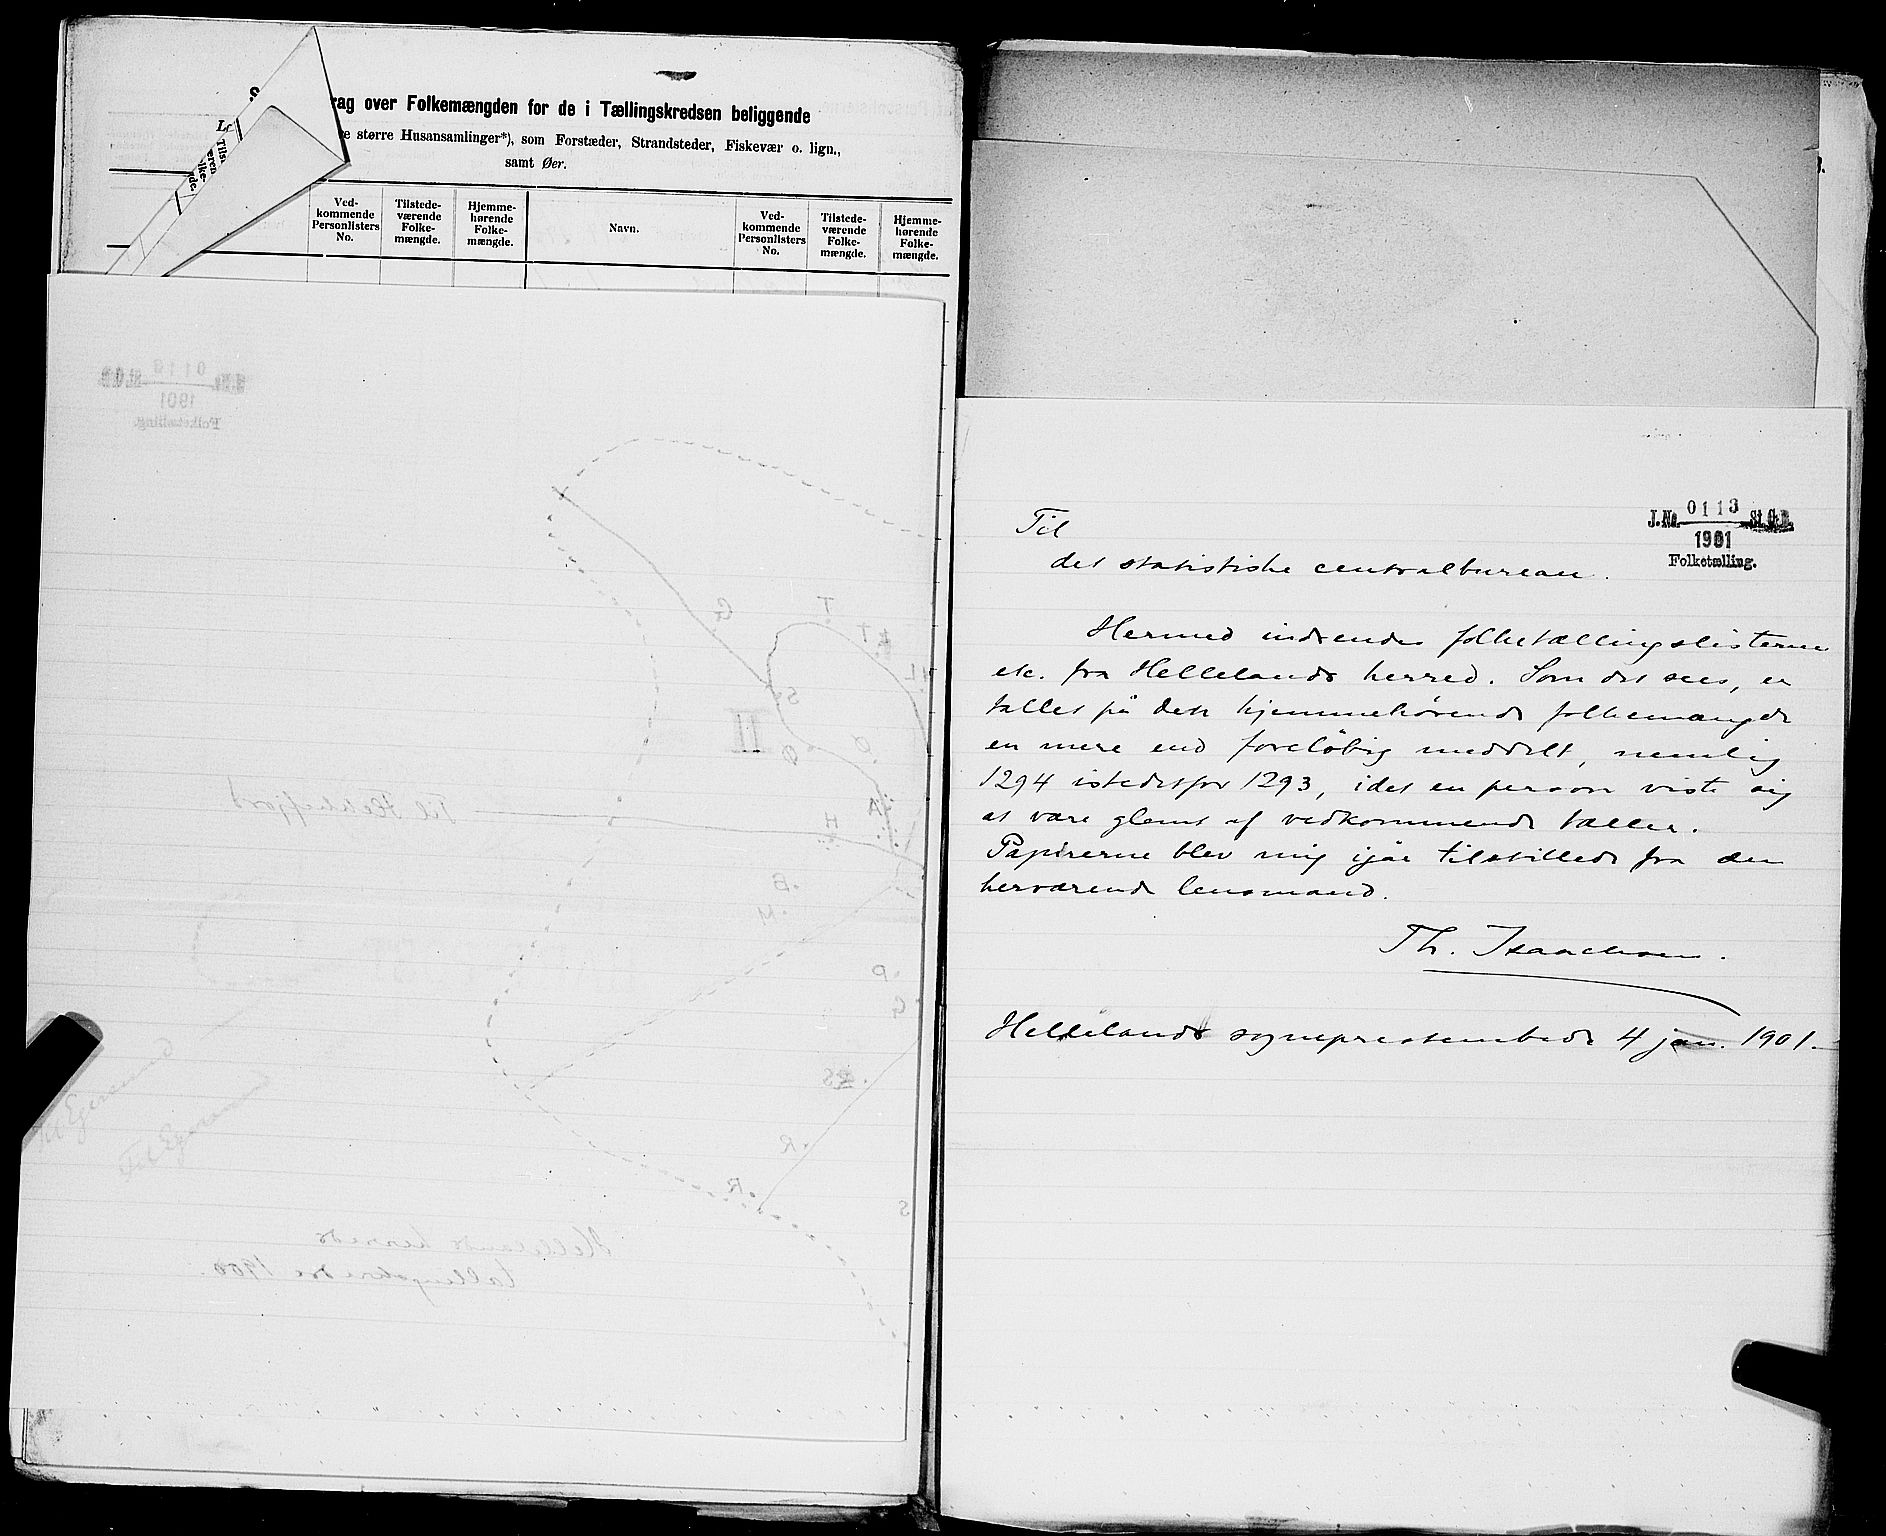 rag over Folkemængden for de i Tællingskredsen beliggende
e større Husansamlinger*), som Forstæder, Strandsteder, Fiskevær o. lign.,
samt Øer.
Ved-
kommende
Personlisters
No.
Tilstede-
værende
Folke-
mængde.
Hjemme-
hørende
Folke-
mængde.
Navn.
Ved-
kommende
Personlisters
No.
Tilstede-
værende
Folke-
mængde.
Hjemme-
hørende
Folke-
mængde.
J.No. 0113 St.C.B.
1901
Folketælling.
G
T
T
L
S
II
Ø
O
A
H
Til Hekkefjord
B
M
P
G
S
R
R
S
Til Egersund
Til Egersund
Hellelands herreds
tællingskredse 1900.
J.No. 0113 St.C.B.
1901
Folketælling.
Til
det statistiske centralbureau.
Hermed indsendes folketællingslisterne
etc. fra Hellelands herred. Som det sees, er
tallet på den hjemmehørende folkemængde
en mere end foreløbig meddelt, nemlig
1294 istedetfor 1293, idet en person viste sig
at være glemt af vedkommende tæller.
Papirerne blev mig igår tilstillede fra den
herværende lensmand.
Th. Isaachsen.
Hellelands sogneprestembede 4 jan. 1901.